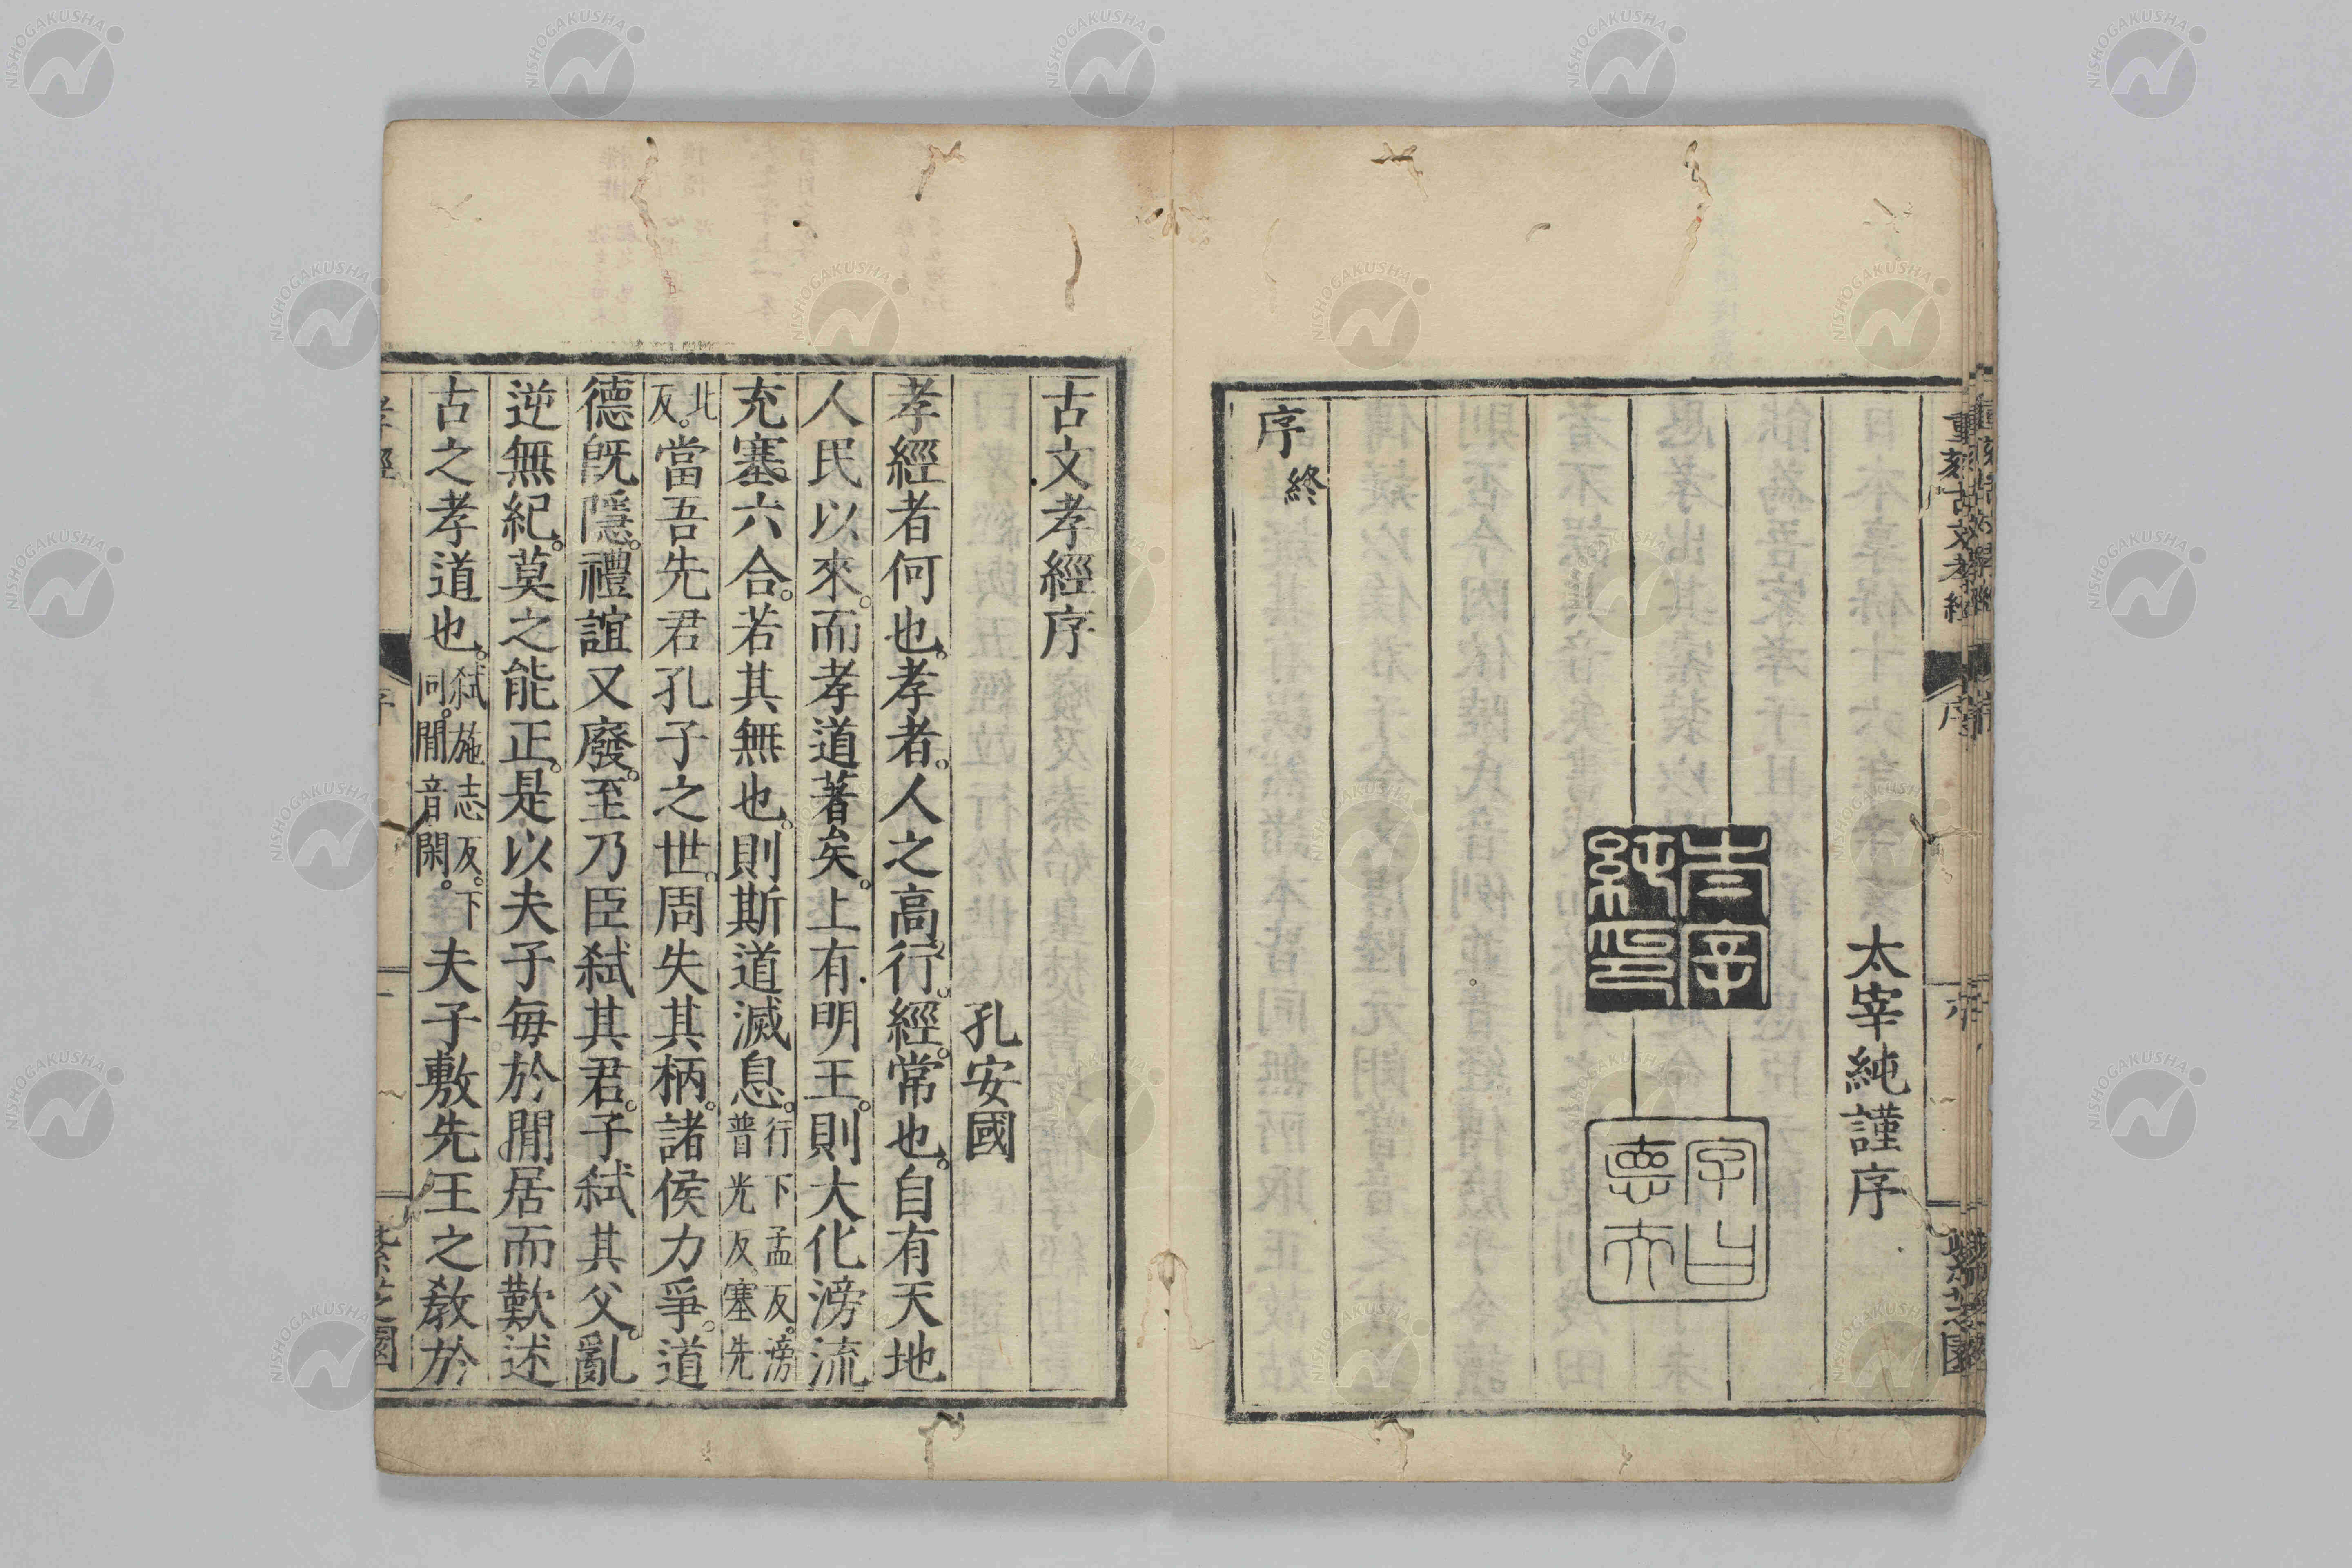 太宰純謹序
太宰純印
字曰德夫
序終
古文孝經序
孔安國
孝經者何也。孝者。人之高行。經。常也。自有天地
人民以來。而孝道著矣。上有明王。則大化滂流
充塞六合。若其無也。則斯道滅息。行下孟反。滂普光反。塞先
北反。當吾先君孔子之世。周失其柄。諸侯力爭。道
德既隱。禮誼又廢。至乃臣弑其君。子弑其父。亂
逆無紀。莫之能正。是以夫子每於閒居而歎述
古之孝道也。弑施志反。下同。閒音閑。夫子敷先王之敎於
重刻古文孝經
序
紫芝園
NISHOGAKUSHA